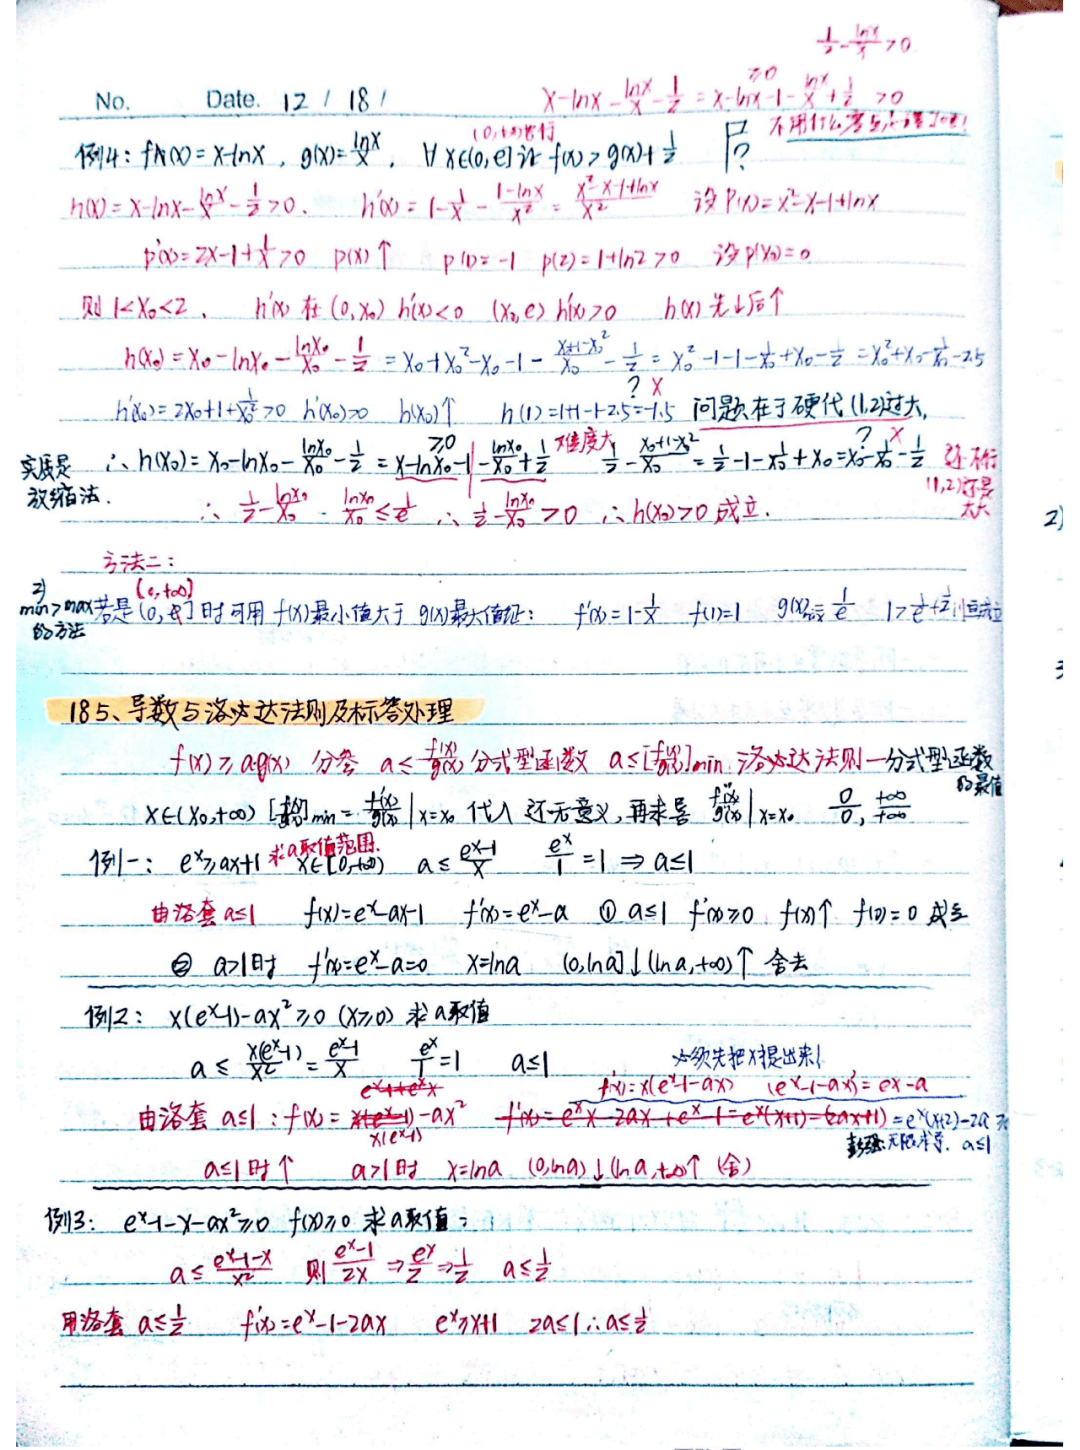 1/2 - lnx/x > 0
No. Date. 12 / 18 /
x-lnx - lnx/x - 1/2 = x-lnx-1 - lnx/x + 1/2 > 0
≥0
(0,+∞)皆行
例4: f(x) = x-lnx , g(x) = lnx/x , ∀ x∈(0, e] 证 f(x) > g(x) + 1/2
h(x) = x-lnx - lnx/x - 1/2 > 0. h'(x) = 1 - 1/x - (1-lnx)/x² = (x²-x-1+lnx)/x² 设 P(x) = x²-x-1+lnx
p'(x) = 2x-1+1/x > 0 p(x)↑ p(1) = -1 p(2) = 1+ln2 > 0 设 p(x₀) = 0
则 1<x₀<2 , h'(x) 在 (0, x₀) h'(x)<0 (x₀, e) h'(x)>0 h(x) 先↓后↑
h(x₀) = x₀ - lnx₀ - lnx₀/x₀ - 1/2 = x₀+x₀²-x₀-1 - (x₀+1-x₀²)/x₀ - 1/2 = x₀²-1-1-1/x₀+x₀-1/2 = x₀²+x₀-1/x₀-2.5
? ×
h'(x₀) = 2x₀+1+1/x₀² > 0 h'(x₀)>0 h(x₀)↑ h(1) = 1+1-1-2.5 = -1.5 问题在于硬代 (1,2)过大,
实质是放缩法.
∴ h(x₀) = x₀-lnx₀ - lnx₀/x₀ - 1/2 = x-lnx₀-1 - lnx₀/x₀ + 1/2 难度大 1/2 - (x₀+1-x₀²)/x₀ = 1/2-1-1/x₀+x₀ = x₀-1/x₀-1/2 还不行
≥0 ? ×
(1,2)还是太大
∴ 1/2 - lnx₀/x₀ · lnx₀/x₀ ≤ 1/e ∴ 1/2 - lnx₀/x₀ > 0 ∴ h(x₀)>0 成立.
方法二:
2) min>max的方法
(0,+∞)
若是 (0, e] 时可用 f(x)最小值大于 g(x)最大值证: f'(x) = 1-1/x f(1)=1 g(x) 1/e 1 > 1/e + 1/2 恒成立
185、导数与洛必达法则及标答处理
f(x) ≥ a·g(x) 分参 a ≤ f(x)/g(x) 分式型函数 a ≤ [f(x)/g(x)]min 洛必达法则—分式型函数的最值
x∈(x₀,+∞) [f(x)/g(x)]min = f'(x)/g'(x) | x=x₀ 代入 还无意义, 再求导 f''(x)/g''(x) | x=x₀ 0/0, +∞/+∞
例一: eˣ ≥ ax+1 求a取值范围. x∈[0,+∞) a ≤ (eˣ-1)/x eˣ/1 = 1 ⇒ a≤1
由洛套 a≤1 f(x)=eˣ-ax-1 f'(x)=eˣ-a ① a≤1 f'(x)≥0 f(x)↑ f(0)=0 成立
② a>1时 f'(x)=eˣ-a=0 x=lna (0,lna]↓(lna,+∞)↑ 舍去
例2: x(eˣ-1)-ax² ≥0 (x≥0) 求a取值
a ≤ x(eˣ-1)/x² = (eˣ-1)/x eˣ/1 = 1 a≤1 必须先把x提出来!
f(x) = x(eˣ-1-ax) (eˣ-1-ax)' = eˣ-a
由洛套 a≤1 : f(x) = x(eˣ-1) -ax² f'(x) = eˣx-2ax+eˣ-1 = eˣ(x+1)-(2ax+1) = eˣ(x+2)-2a
无限求导. a≤1
a≤1时↑ a>1时 x=lna (0,lna)↓(lna,+∞)↑ (舍)
例3: eˣ-1-x-ax² ≥0 f(x)≥0 求a取值:
a ≤ (eˣ-1-x)/x² 则 (eˣ-1)/2x → eˣ/2 → 1/2 a≤1/2
用洛套 a≤1/2 f'(x)=eˣ-1-2ax eˣ≥x+1 2a≤1 ∴a≤1/2